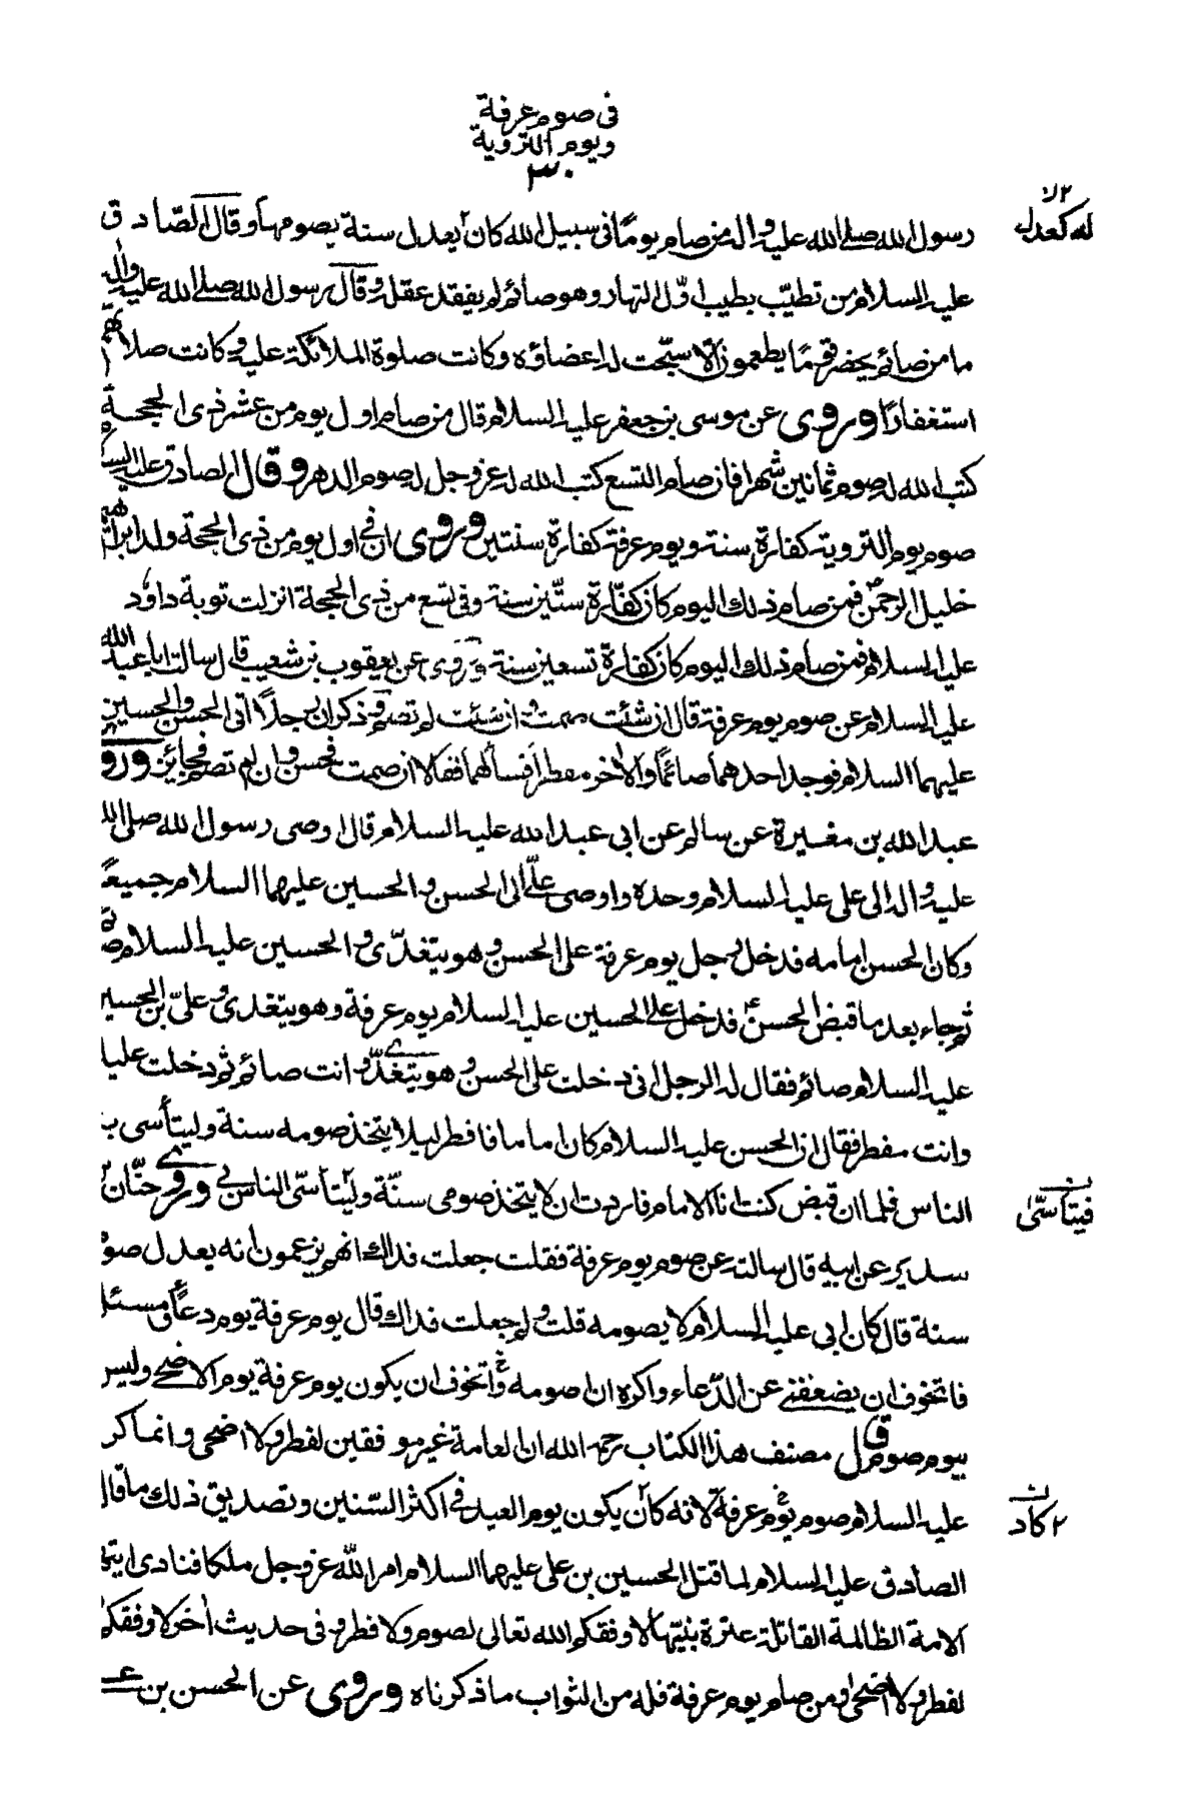 فى صوم عرفة
ويوم التروية
٣٠
٢ لا
له كعدل
رسول الله صلى الله عليه واله من صام يومًا فى سبيل الله كان يعدل سنة يصومها وقال الصّادق
عليه السلام من تطيّب بطيب اوّل النهار وهو صائم لم يفقد عقله وقال رسول الله صلى الله عليه واله
ما من صائم يحضر قومًا يطعمون الّا سبّحت له اعضاؤه وكانت صلوة الملائكة عليه وكانت صلاتهم
استغفارًا وروى عن موسى بن جعفر عليه السلام قال من صام اول يوم من عشر ذى الحجة
كتب الله له صوم ثمانين شهرا فان صام التسع كتب الله له عز وجل له صوم الدهر وقال الصادق عليه السلام
صوم يوم التروية كفارة سنة ويوم عرفة كفارة سنتين وروى ان فى اول يوم من ذى الحجة ولد ابراهيم
خليل الرحمن فمن صام ذلك اليوم كان كفّارة ستّين سنة وفى تسع من ذى الحجة انزلت توبة داود
عليه السلام فمن صام ذلك اليوم كان كفارة تسعين سنة وروى عن يعقوب بن شعيب قال سالت ابا عبد الله
عليه السلام عن صوم يوم عرفة قال ان شئت صمت وان شئت لم تصم وذكر ان رجلاً اتى الحسن والحسين
عليهما السلام فوجد احدهما صائمًا والاخر مفطرا فسألهما فقالا ان صمت فحسن وان لم تصم فجائز ورو
عبد الله بن مغيرة عن سالم عن ابى عبد الله عليه السلام قال اوصى رسول الله صلى الله
عليه واله الى على عليه السلام وحده واوصى علىّ الى الحسن والحسين عليهما السلام جميعًا
وكان الحسن امامه فدخل رجل يوم عرفة على الحسن وهو يتغدّى والحسين عليه السلام صائم
ثم جاء بعد ما قبض الحسن ع فدخل على الحسين عليه السلام يوم عرفة وهو يتغدى وعلىّ بن الحسين
عليه السلام صائم فقال له الرجل انى دخلت على الحسن وهو يتغدّى وانت صائم ثم دخلت عليك
وانت مفطر فقال ان الحسن عليه السلام كان اماما فافطر ليلا يتخذ صومه سنة وليتأسى به
الناس فلما ان قبض كنت انا الامام فاردت ان لا يتخذ صومى سنّة وليتأسّى الناس بى وروى حنّان بن
فيتأسّى
سدير عن ابيه قال سالته عن صوم يوم عرفة فقلت جعلت فداك انهم يزعمون انه يعدل صوم
سنة قال كان ابى عليه السلام لا يصومه قلت ولم جعلت فداك قال يوم عرفة يوم دعاء ومسئلة
فاتخوف ان يضعفنى عن الدّعاء واكره ان اصومه واتخوف ان يكون يوم عرفة يوم الاضحى وليس
بيوم صوم قال مصنف هذا الكتاب رحمه الله ان العامة غير موفقين لفطر ولا اضحى وانما كره
عليه السلام صوم يوم عرفة لانه كان يكون يوم العيد فى اكثر السّنين وتصديق ذلك ما قال
ن
٢ كاد
الصادق عليه السلام لما قتل الحسين بن على عليهما السلام امر الله عز وجل ملكا فنادى ايتها
الامة الظالمة القاتلة عترة نبيّها لا وفقكم الله تعالى لصوم ولا فطر وفى حديث اخر لا وفقكم
لفطر ولا اضحى ومن صام يوم عرفة فله من الثواب ما ذكرناه وروى عن الحسن بن على